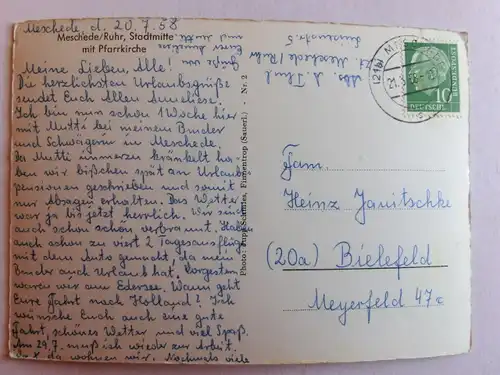 Meschede, d. 20.7.58
Meschede/Ruhr, Stadtmitte
mit Pfarrkirche
Meine Lieben, Alle!
Die herzlichsten Urlaubsgrüße
sendet Euch Allen Anneliese.
Ich bin nun schon 1 Woche hier
mit Mutti bei meinem Bruder
und Schwägerin in Meschede.
Da Mutti immerzu kränkelt ha-
ben wir bißchen spät an Urlaubs-
pensionen geschrieben und somit
nur Absagen erhalten. Das Wetter
war ja bis jetzt herrlich. Wir sind
auch schon schön verbrannt. Haben
auch schon zu viert 2 Tagesausflüge
mit dem Auto gemacht, da mein
Bruder auch Urlaub hat. Vorgestern
waren wir am Edersee. Wann geht
Eure Fahrt nach Holland? Ich
wünsche Euch auch eine gute
Fahrt, schönes Wetter und viel Spaß.
Am 29.7. muß ich wieder zur Arbeit.
da wohnen wir. Nochmals viele
Grüße von
Eurer Anneliese
und Mutti
Abs. A.
Meschede/Ruhr
Photo: Finnentrop (Sauerl.) - Nr. 2
(21b)
DEUTSCHE
BUNDESPOST
10
Fam.
Heinz Janitschke
(20a) Bielefeld
Meyerfeld 47c